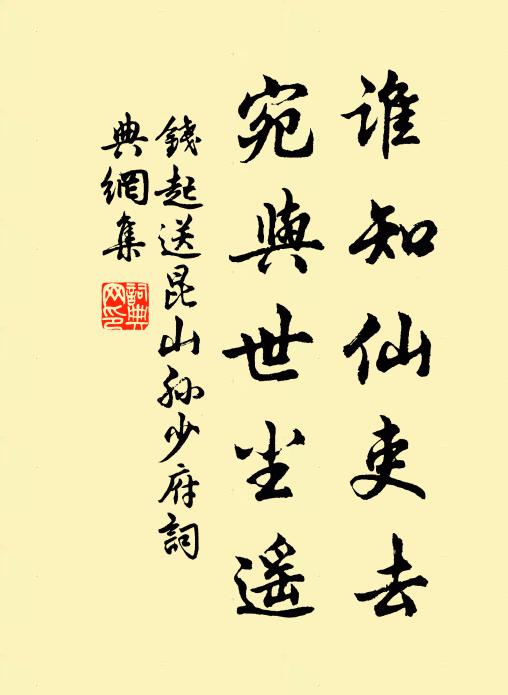 谁知仙吏去
宛與世尘遥
錢起送昆山孙少府詞
典網集
詞典网印